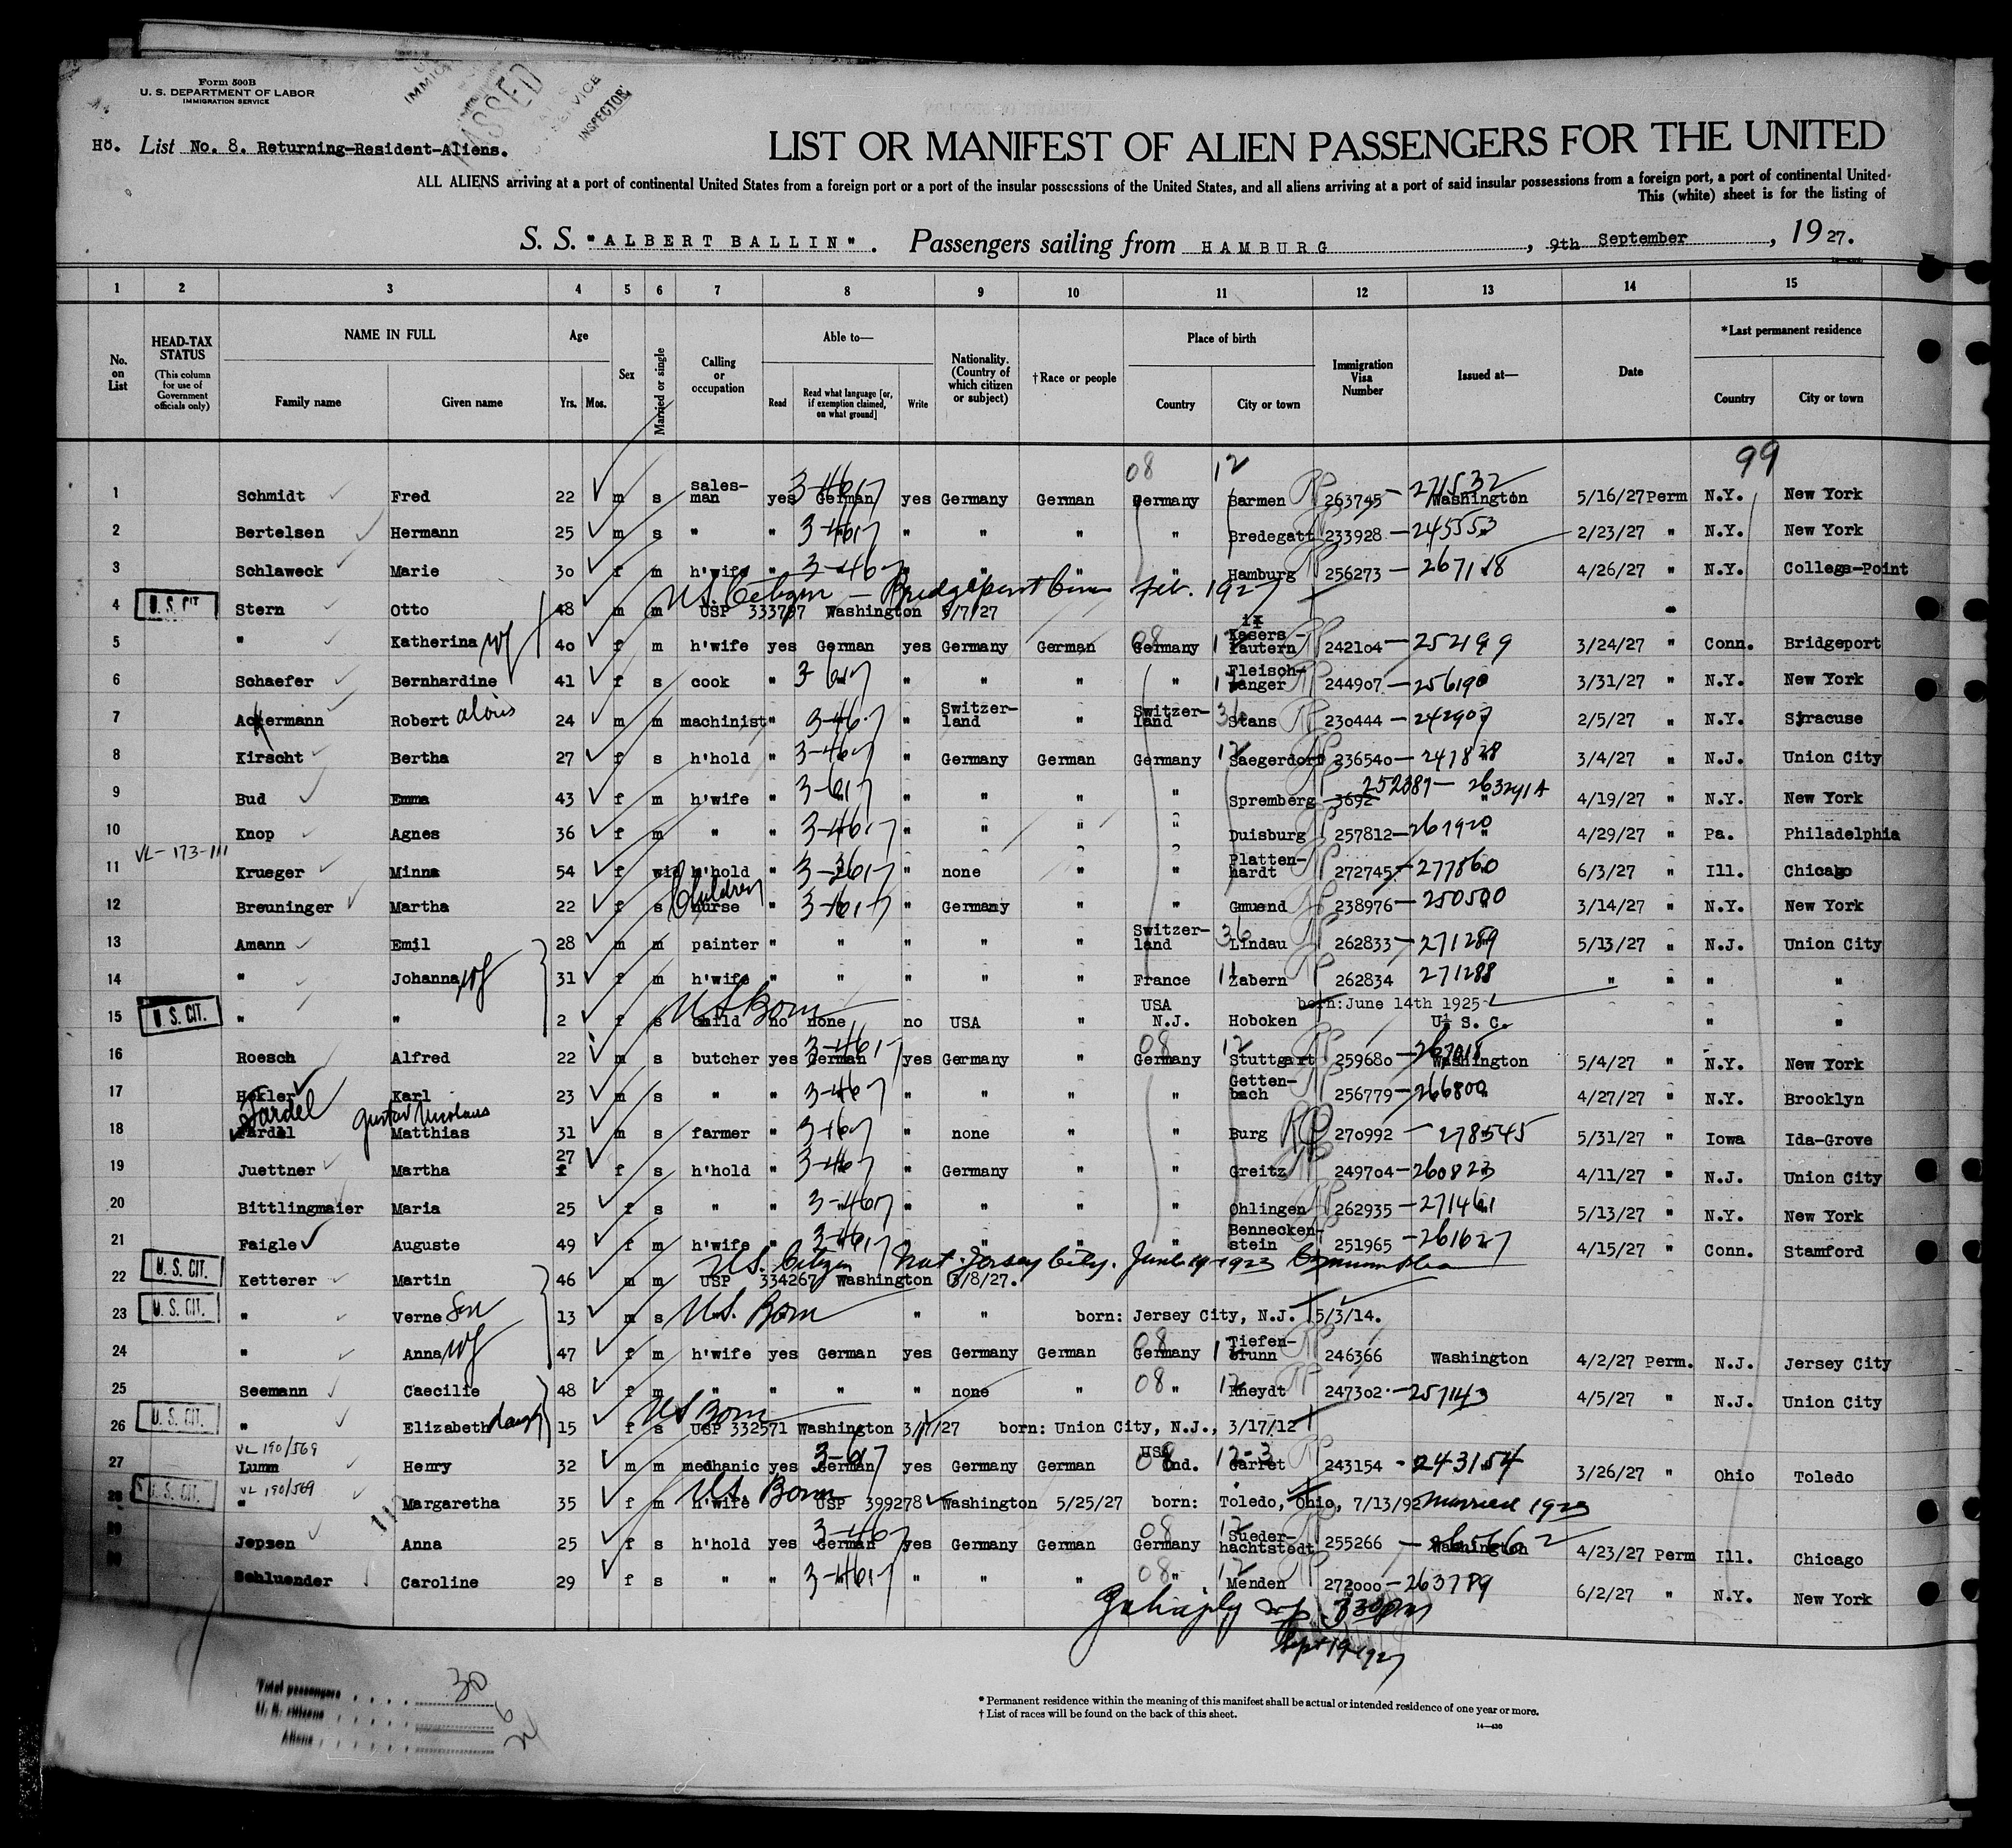 Form 500B
U. S. DEPARTMENT OF LABOR
IMMIGRATION SERVICE
PASSED
IMMIG
SERVICE
INSPECTOR
Hö. List No. 8. Returning-Resident-Aliens.
LIST OR MANIFEST OF ALIEN PASSENGERS FOR THE UNITED
ALL ALIENS arriving at a port of continental United States from a foreign port or a port of the insular possessions of the United States, and all aliens arriving at a port of said insular possessions from a foreign port, a port of continental United
This (white) sheet is for the listing of
S. S. "ALBERT BALLIN". Passengers sailing from HAMBURG, 9th September, 1927.
1 2 3 4 5 6 7 8 9 10 11 12 13 14 15
No. on List
HEAD-TAX STATUS
(This column for use of Government officials only)
NAME IN FULL
Family name Given name
Age
Yrs. Mos.
Sex
Married or single
Calling or occupation
Able to—
Read Read what language [or, if exemption claimed, on what ground] Write
Nationality. (Country of which citizen or subject)
†Race or people
Place of birth
Country City or town
Immigration Visa Number
Issued at—
Date
*Last permanent residence
Country City or town
99
08 12
1 Schmidt Fred 22 m s sales-man yes German 3-4617 yes Germany German Germany Barmen 263745 - 271532 Washington 5/16/27 Perm N.Y. New York
2 Bertelsen Hermann 25 m s " " 3-4617 " " " " Bredegatt 233928 - 245553 2/23/27 " N.Y. New York
3 Schlaweck Marie 30 f m h'wife " 3-467 " " " " Hamburg 256273 - 267118 4/26/27 " N.Y. College-Point
U.S. Citizen - Bridgeport Conn Feb. 1927
4 U. S. CIT. Stern Otto 48 m m USP 333797 Washington 5/7/27
5 " Katherina wf 40 f m h'wife yes German yes Germany German 08 Germany Kasers-lautern 242104 - 252199 3/24/27 " Conn. Bridgeport
6 Schaefer Bernhardine 41 f s cook " 3 617 " " " " Fleisch-wanger 244907 - 256190 3/31/27 " N.Y. New York
7 Ackermann Robert Alois 24 m m machinist " 3-467 " Switzer-land " Switzer-land 36 Stans 230444 - 242907 2/5/27 " N.Y. Syracuse
8 Kirscht Bertha 27 f s h'hold " 3-467 " Germany German Germany 12 Saegerdorf 236540 - 247828 3/4/27 " N.J. Union City
9 Bud Emma 43 f m h'wife " 3-617 " " " " Spremberg 3692 252387 - 263291A 4/19/27 " N.Y. New York
10 Knop Agnes 36 f m " " 3-4617 " " " " Duisburg 257812 - 267920 4/29/27 " Pa. Philadelphia
VL-173-111
11 Krueger Minna 54 f wid h'hold " 3-2617 " none " " Platten-hardt 272745 - 277860 6/3/27 " Ill. Chicago
12 Breuninger Martha 22 f s Children nurse " 3-1617 " Germany " " Gmuend 238976 - 250500 3/14/27 " N.Y. New York
13 Amann Emil 28 m m painter " " " " " Switzer-land 36 Lindau 262833 - 271289 5/13/27 " N.J. Union City
14 " Johanna wf 31 f m h'wife " " " " " France 11 Zabern 262834 271288 " " " "
15 U. S. CIT. " " 2 f s child U.S. Born no none no USA " USA N.J. Hoboken born: June 14th 1925 U. S. C. " "
16 Roesch Alfred 22 m s butcher yes German 3-4617 yes Germany " 08 Germany 12 Stuttgart 259680 - 267018 Washington 5/4/27 " N.Y. New York
17 Hekler Karl 23 m s " " 3-467 " " " " Getten-bach 256779 - 266800 4/27/27 " N.Y. Brooklyn
Jardel Gustav Nicolaus
18 Matthias 31 m s farmer " 3-167 " none " " Burg 270992 - 278545 5/31/27 " Iowa Ida-Grove
19 Juettner Martha 27 f s h'hold " 3-467 " Germany " " Greitz 249704 - 260823 4/11/27 " N.J. Union City
20 Bittlingmaier Maria 25 f s " " 3-4617 " " " " Ohlingen 262935 - 271461 5/13/27 " N.Y. New York
21 Faigle Auguste 49 f m h'wife " 3-4617 " " " " Bennecken-stein 251965 - 261627 4/15/27 " Conn. Stamford
U.S. Citizen Nat. Jersey City. June 19-1923
22 U. S. CIT. Ketterer Martin 46 m m USP 334267 Washington 3/8/27.
23 U. S. CIT. " Verne Son 13 m s U.S. Born " " born: Jersey City, N.J. 5/3/14.
24 " Anna wf 47 f m h'wife yes German yes Germany German 08 Germany Tiefen-brunn 246366 Washington 4/2/27 Perm. N.J. Jersey City
25 Seemann Caecilie 48 f m " " " " none " 08 " 12 Rheydt 247302 - 257143 4/5/27 " N.J. Union City
26 U. S. CIT. " Elizabeth daugh 15 f s U.S. Born USP 332571 Washington 3/7/27 born: Union City, N.J., 3/17/12
VL 190/569
27 Lumm Henry 32 m m mechanic yes German 3-617 yes Germany German USA 08 Ind. 12-3 Garret 243154 - 243154 3/26/27 " Ohio Toledo
VL 190/569
28 U. S. CIT. " Margaretha 35 f m h'wife U.S. Born USP 399278 Washington 5/25/27 born: Toledo, Ohio, 7/13/92 Married 1923
29 Jepsen Anna 25 f s h'hold yes German 3-467 yes Germany German 08 Germany 12 Sueder-hachtstedt 255266 - 265662 Washington 4/23/27 Perm Ill. Chicago
30 Schluender Caroline 29 f s " " 3-4617 " " " 08 " 12 Menden 272000 - 263789 6/2/27 " N.Y. New York
330pm
Sept 19-1927
Total passengers 30
U. S. citizens 6
Aliens 24
* Permanent residence within the meaning of this manifest shall be actual or intended residence of one year or more.
† List of races will be found on the back of this sheet.
14—430